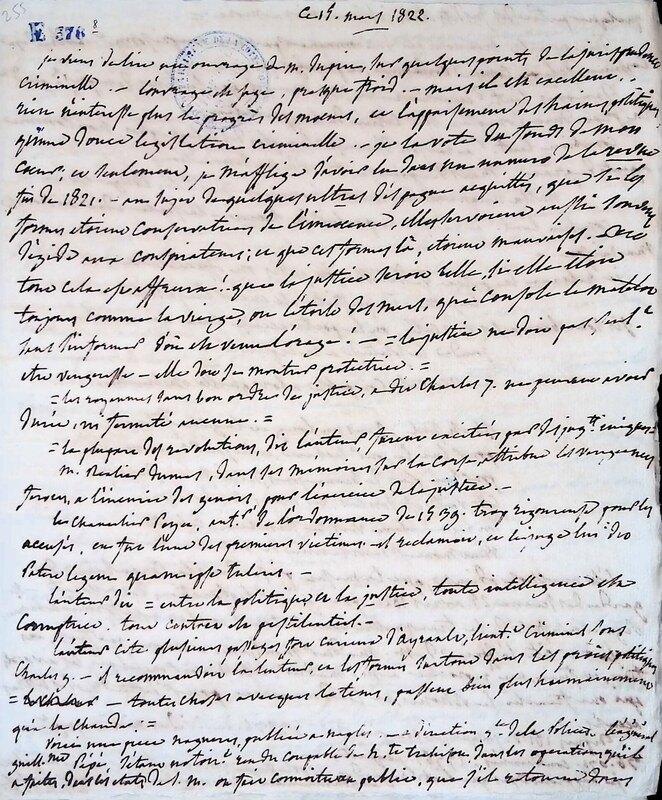 255
Ce 19. mars 1822.
E 376 8
je viens de lire un ouvrage de m. Dupin, sur quelques points de la jurisprudence
criminelle. — L'ouvrage est sage, presque froid. — mais il est excellent. —
rien n'interesse plus le progrès des moeurs, et l'appaisement des haines politiques
qu'une douce legislation criminelle. — je la vote du fonds de mon
Coeur; et seulement, je m'afflige d'avoir lu dans un numero de la revue
fin de 1821. — au sujet de quelques ultras d'espagne acquittés, que si les
formes etoient Conservatrices de l'innocence, elles servoient aussi souvent
d'égide aux Conspirateurs; et que ces formes là, etoient mauvaises.
tout cela est affreux! que la justice seroit belle, si elle etoit
toujours comme la vierge, ou l'étoile des mers, qui console le matelot
sans s'informer d'où est venu l'orage! — = la justice ne doit pas seult
etre vengeresse — elle doit se montrer protectrice. =
= les royaumes sans bon ordre de justice, a dit Charles 7. ne peuvent avoir
durée, ni fermeté aucune. =
= la plupart des revolutions, dit l'auteur, furent excitées par des jugts iniques =
m. Realier Dumas, dans ses mémoires sur la Corse, attribue les vengeances
feroces, a l'incurie des genois, pour l'exercice de la justice. —
le Chancelier Poyet, autr de l'ordonnance de 1539. trop rigoureuse pour les
accusés, en fut l'une des premieres victimes — il reclamoit, et le juge lui dit
Patere legem quam ipse tuleris. —
l'auteur dit = entre la politique et la justice, toute intelligence est
Corruptrice, tout contact est pestilentiel. —
l'auteur cite plusieurs passages fort curieux d'ayrault, lieutt Criminel sous
Charles 9. — il recommandoit la lenteur, et les formes surtout dans les procès politiques
= toutes choses avecques le tems, passent bien plus humainement
qu'à la chaude. =
Voici une piece nagueres, publiée a naples. — = direction gle de la Police. le général
guillme Pepe, s'etant notoirt rendu coupable de hte trahison, dans les operations qu'il
a faites, dans les etats de s. m. on fait connoitre au public, que s'il retourne dans